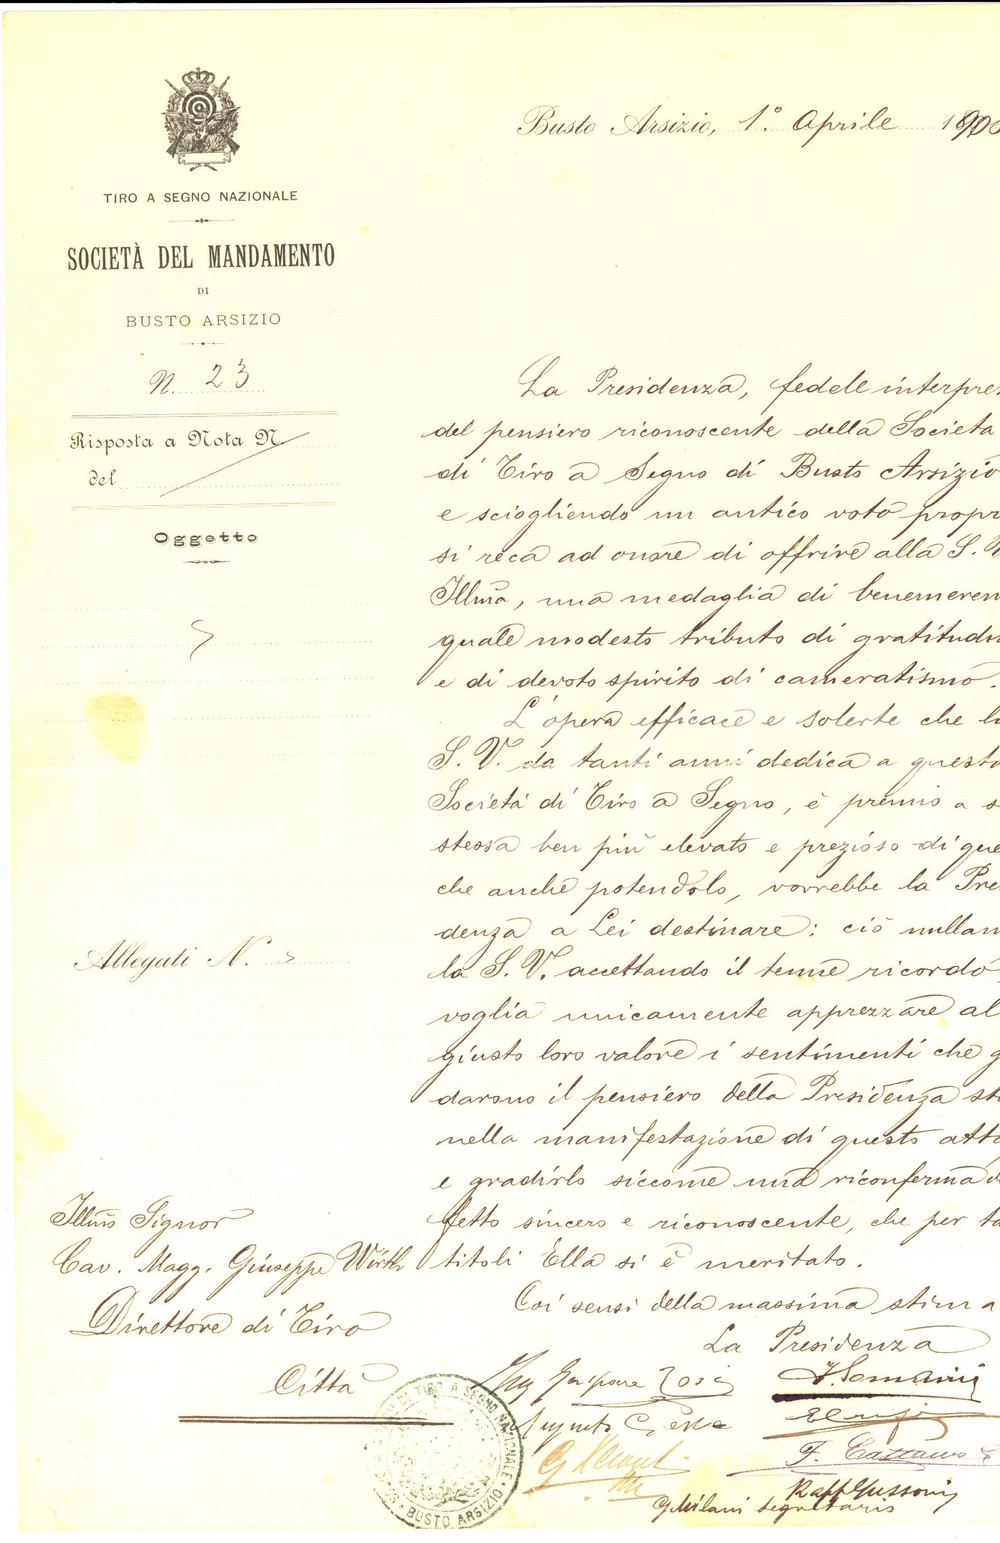 TIRO A SEGNO NAZIONALE
SOCIETÀ DEL MANDAMENTO
DI
BUSTO ARSIZIO
N. 23
Risposta a Nota N
del
Oggetto
Allegati N.
Illmo Signor
Cav. Magg. Giuseppe Wirth
Direttore di Tiro
Città
Busto Arsizio, 1.° Aprile 1900
La Presidenza, fedele interpre
del pensiero riconoscente della Società
di Tiro a Segno di Busto Arsizio
e sciogliendo un antico voto propr
si reca ad onore di offrire alla S.
Illma, una medaglia di benemeren
quale modesto tributo di gratitud
e di devoto spirito di cameratismo.
L'opera efficace e solerte che l
S. V. da tanti anni dedica a questa
Società di Tiro a Segno, è premio a s
stessa ben più elevato e prezioso di que
che anche potendolo, vorrebbe la Pres
denza a Lei destinare: ciò nullam
la S. V. accettando il tenue ricordo,
voglia unicamente apprezzare al
giusto loro valore i sentimenti che g
darono il pensiero della Presidenza st
nella manifestazione di questo atto
e gradirlo siccome una riconferma d
fetto sincero e riconoscente, che per ta
titoli Ella si è meritato.
Coi sensi della massima stima
La Presidenza
F. Cattaneo
G Milani segretario
TIRO A SEGNO NAZIONALE
BUSTO ARSIZIO